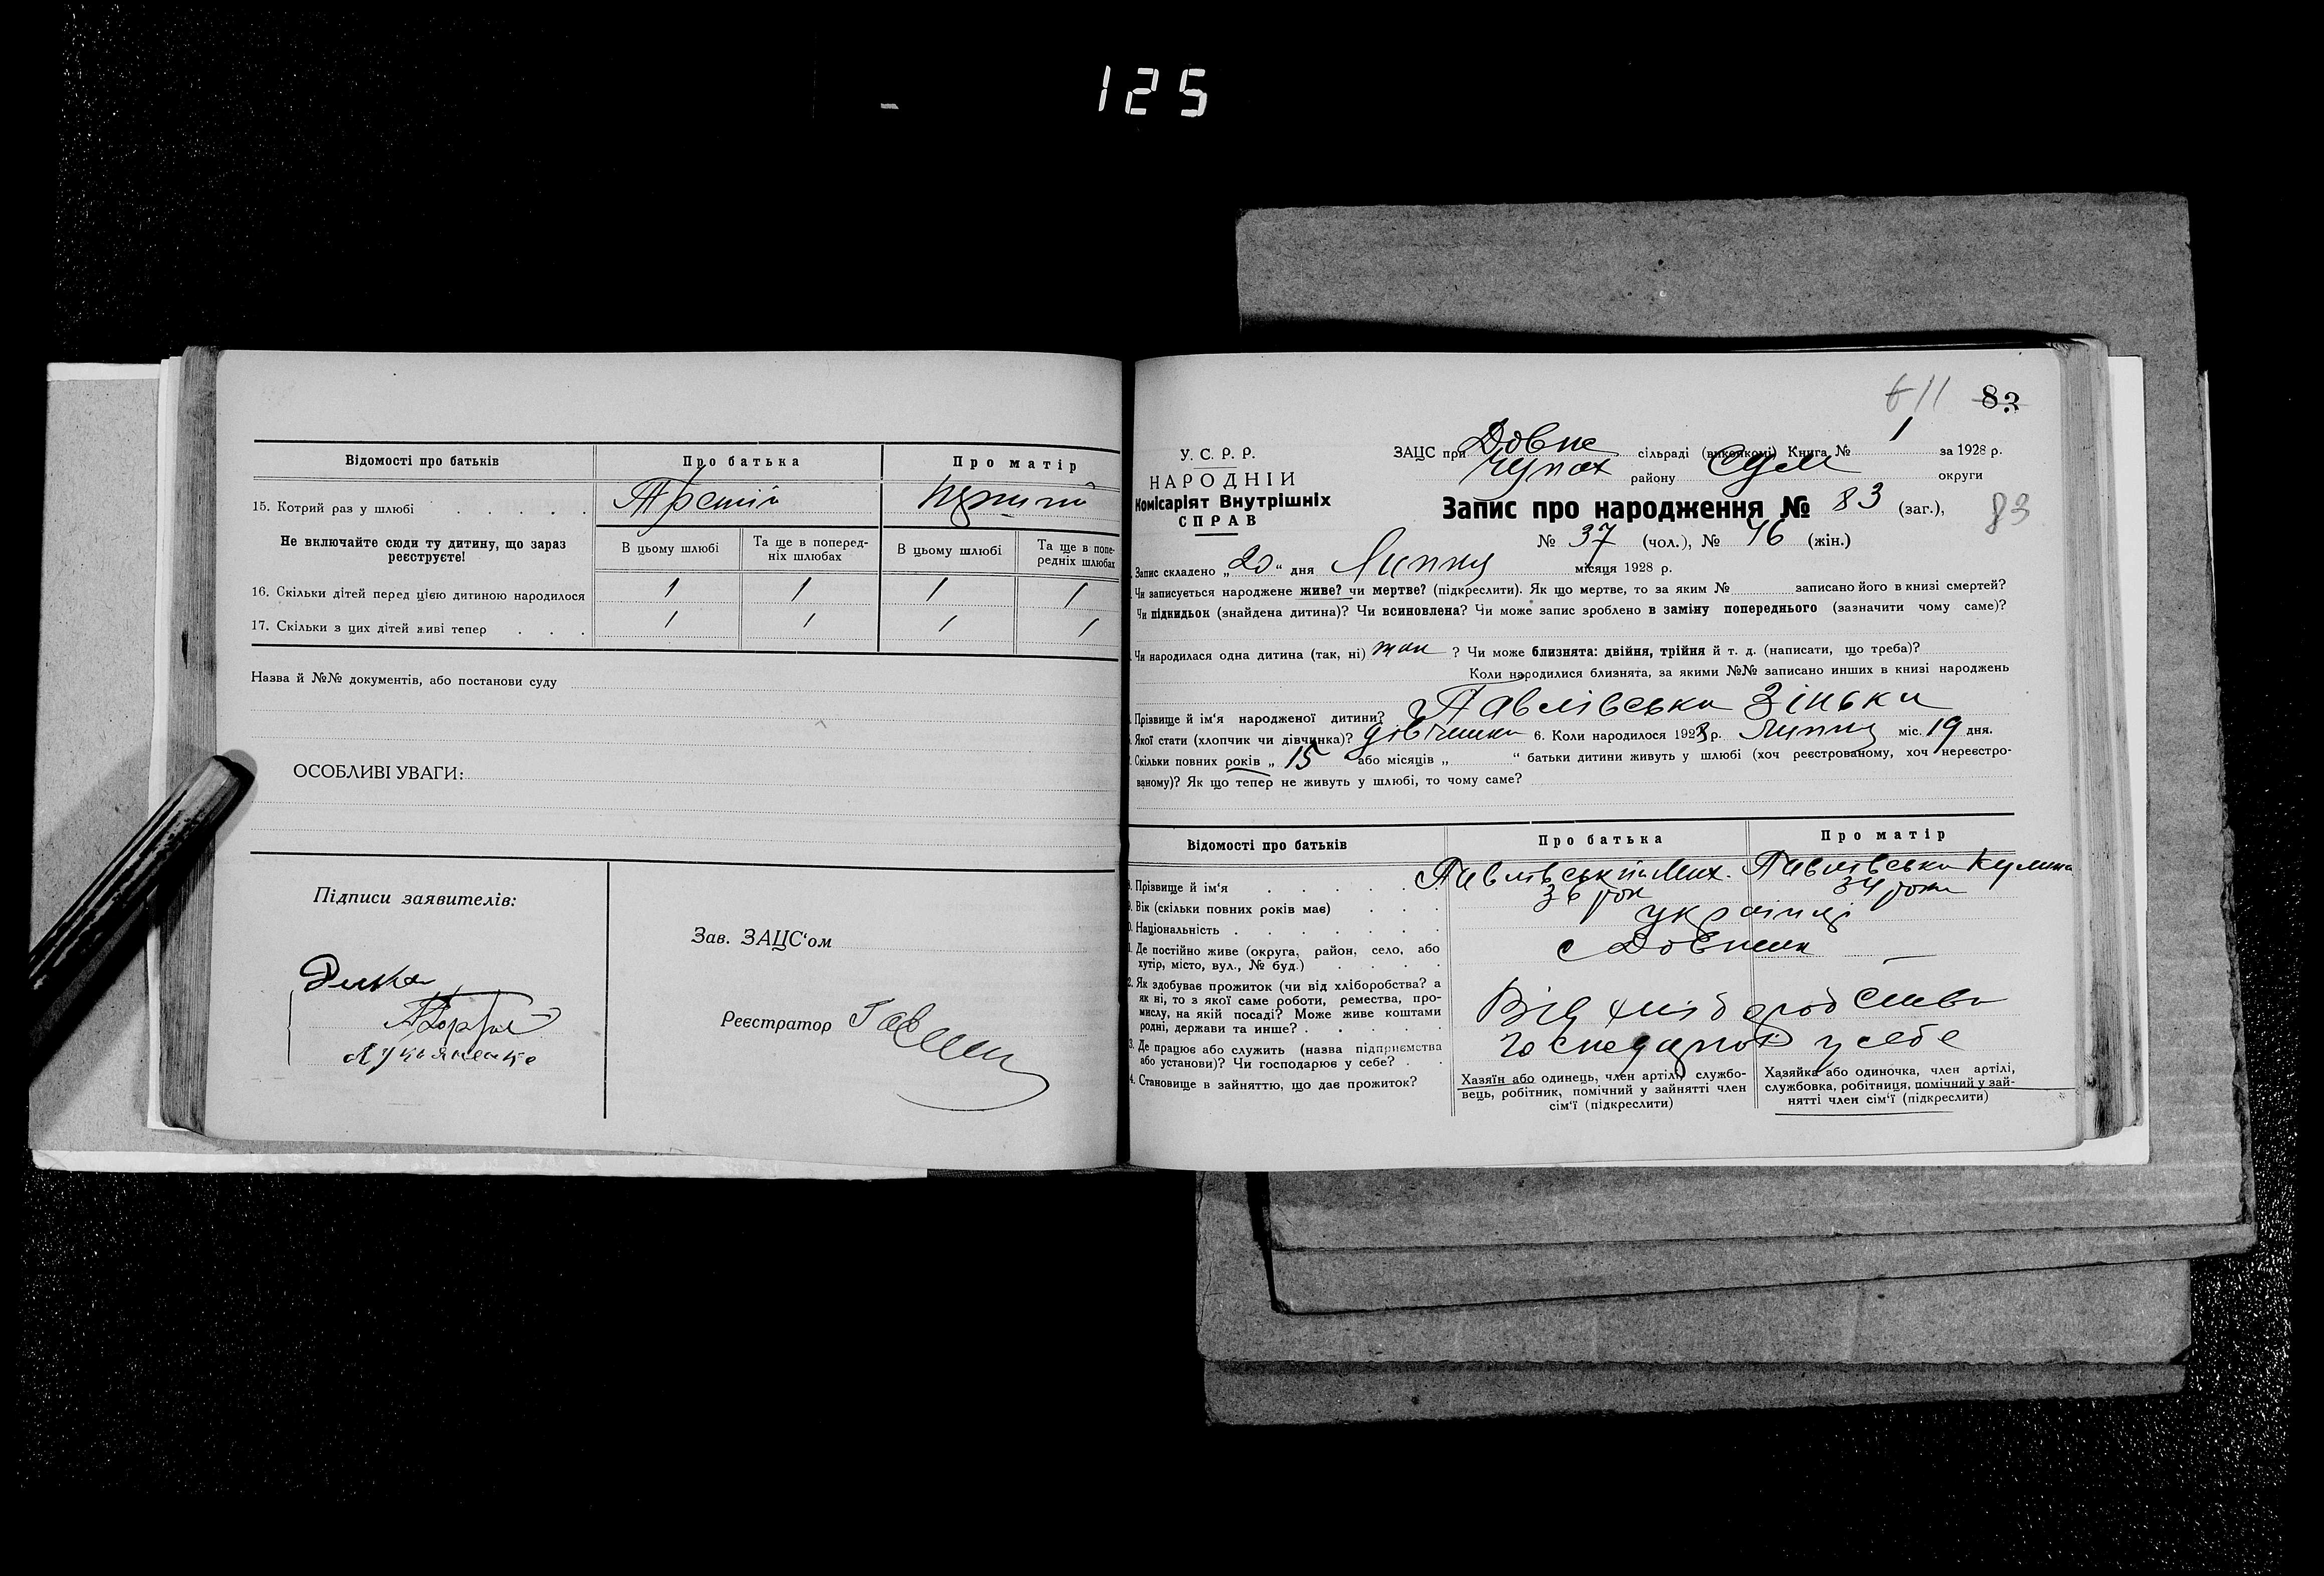 125
Відомості про батьків
Про батька
Про матір
15. Котрий раз у шлюбі
Третій
Не включайте сюди ту дитину, що зараз
реєструєте!
В цьому шлюбі
Та ще в поперед-
ніх шлюбах
В цьому шлюбі
Та ще в попе-
редніх шлюбах
16. Скільки дітей перед цією дитиною народилося
1 1 1 1
17. Скільки з цих дітей живі тепер
1 1 1 1
Назва й №№ документів, або постанови суду
ОСОБЛИВІ УВАГИ:
Підписи заявителів:
Лукьяненко
Зав. ЗАЦС‘ом
Реєстратор
611 83
У. С. Р. Р.
НАРОДНІЙ
Комісаріят Внутрішніх
СПРАВ
ЗАЦС при Довже сільраді (виконкомі) Книга № 1 за 1928 р.
Чупах району Сум округи
Запис про народження № 83 (заг.), 83
№ 37 (чол.), № 46 (жін.)
Запис складено „20“ дня Липня місяця 1928 р.
Чи записується народжене живе? чи мертве? (підкреслити). Як що мертве, то за яким № записано його в книзі смертей?
Чи підкидьок (знайдена дитина)? Чи всиновлена? Чи може запис зроблено в заміну попереднього (зазначити чому саме)?
Чи народилася одна дитина (так, ні) так ? Чи може близнята: двійня, трійня й т. д. (написати, що треба)?
Коли народилися близнята, за якими №№ записано инших в книзі народжень
Прізвище й ім‘я народженої дитини? Павлівська Зінька
Якої стати (хлопчик чи дівчинка)? дівчинка 6. Коли народилося 1928 р. Липня міс. 19 дня.
Скільки повних років „ 15 або місяців „ “ батьки дитини живуть у шлюбі (хоч реєстрованому, хоч нереєстро-
ваному)? Як що тепер не живуть у шлюбі, то чому саме?
Відомості про батьків
Про батька
Про матір
Прізвище й ім‘я
Павлівський Мих.
Павлівська Кулина
Вік (скільки повних років має)
36 рок
34 роки
Національність
українці
1. Де постійно живе (округа, район, село, або
хутір, місто, вул., № буд.)
с Довжик
2. Як здобуває прожиток (чи від хліборобства? а
як ні, то з якої саме роботи, ремества, про-
мислу, на якій посаді? Може живе коштами
родні, держави та инше?
Від хліборобства
3. Де працює або служить (назва підприємства
або установи)? Чи господарює у себе?
господарює у себе
4. Становище в зайняттю, що дає прожиток?
Хазяїн або одинець, член артілі, службо-
вець, робітник, помічний у зайнятті член
сім‘ї (підкреслити)
Хазяйка або одиночка, член артілі,
службовка, робітниця, помічний у зай-
нятті член сім‘ї (підкреслити)